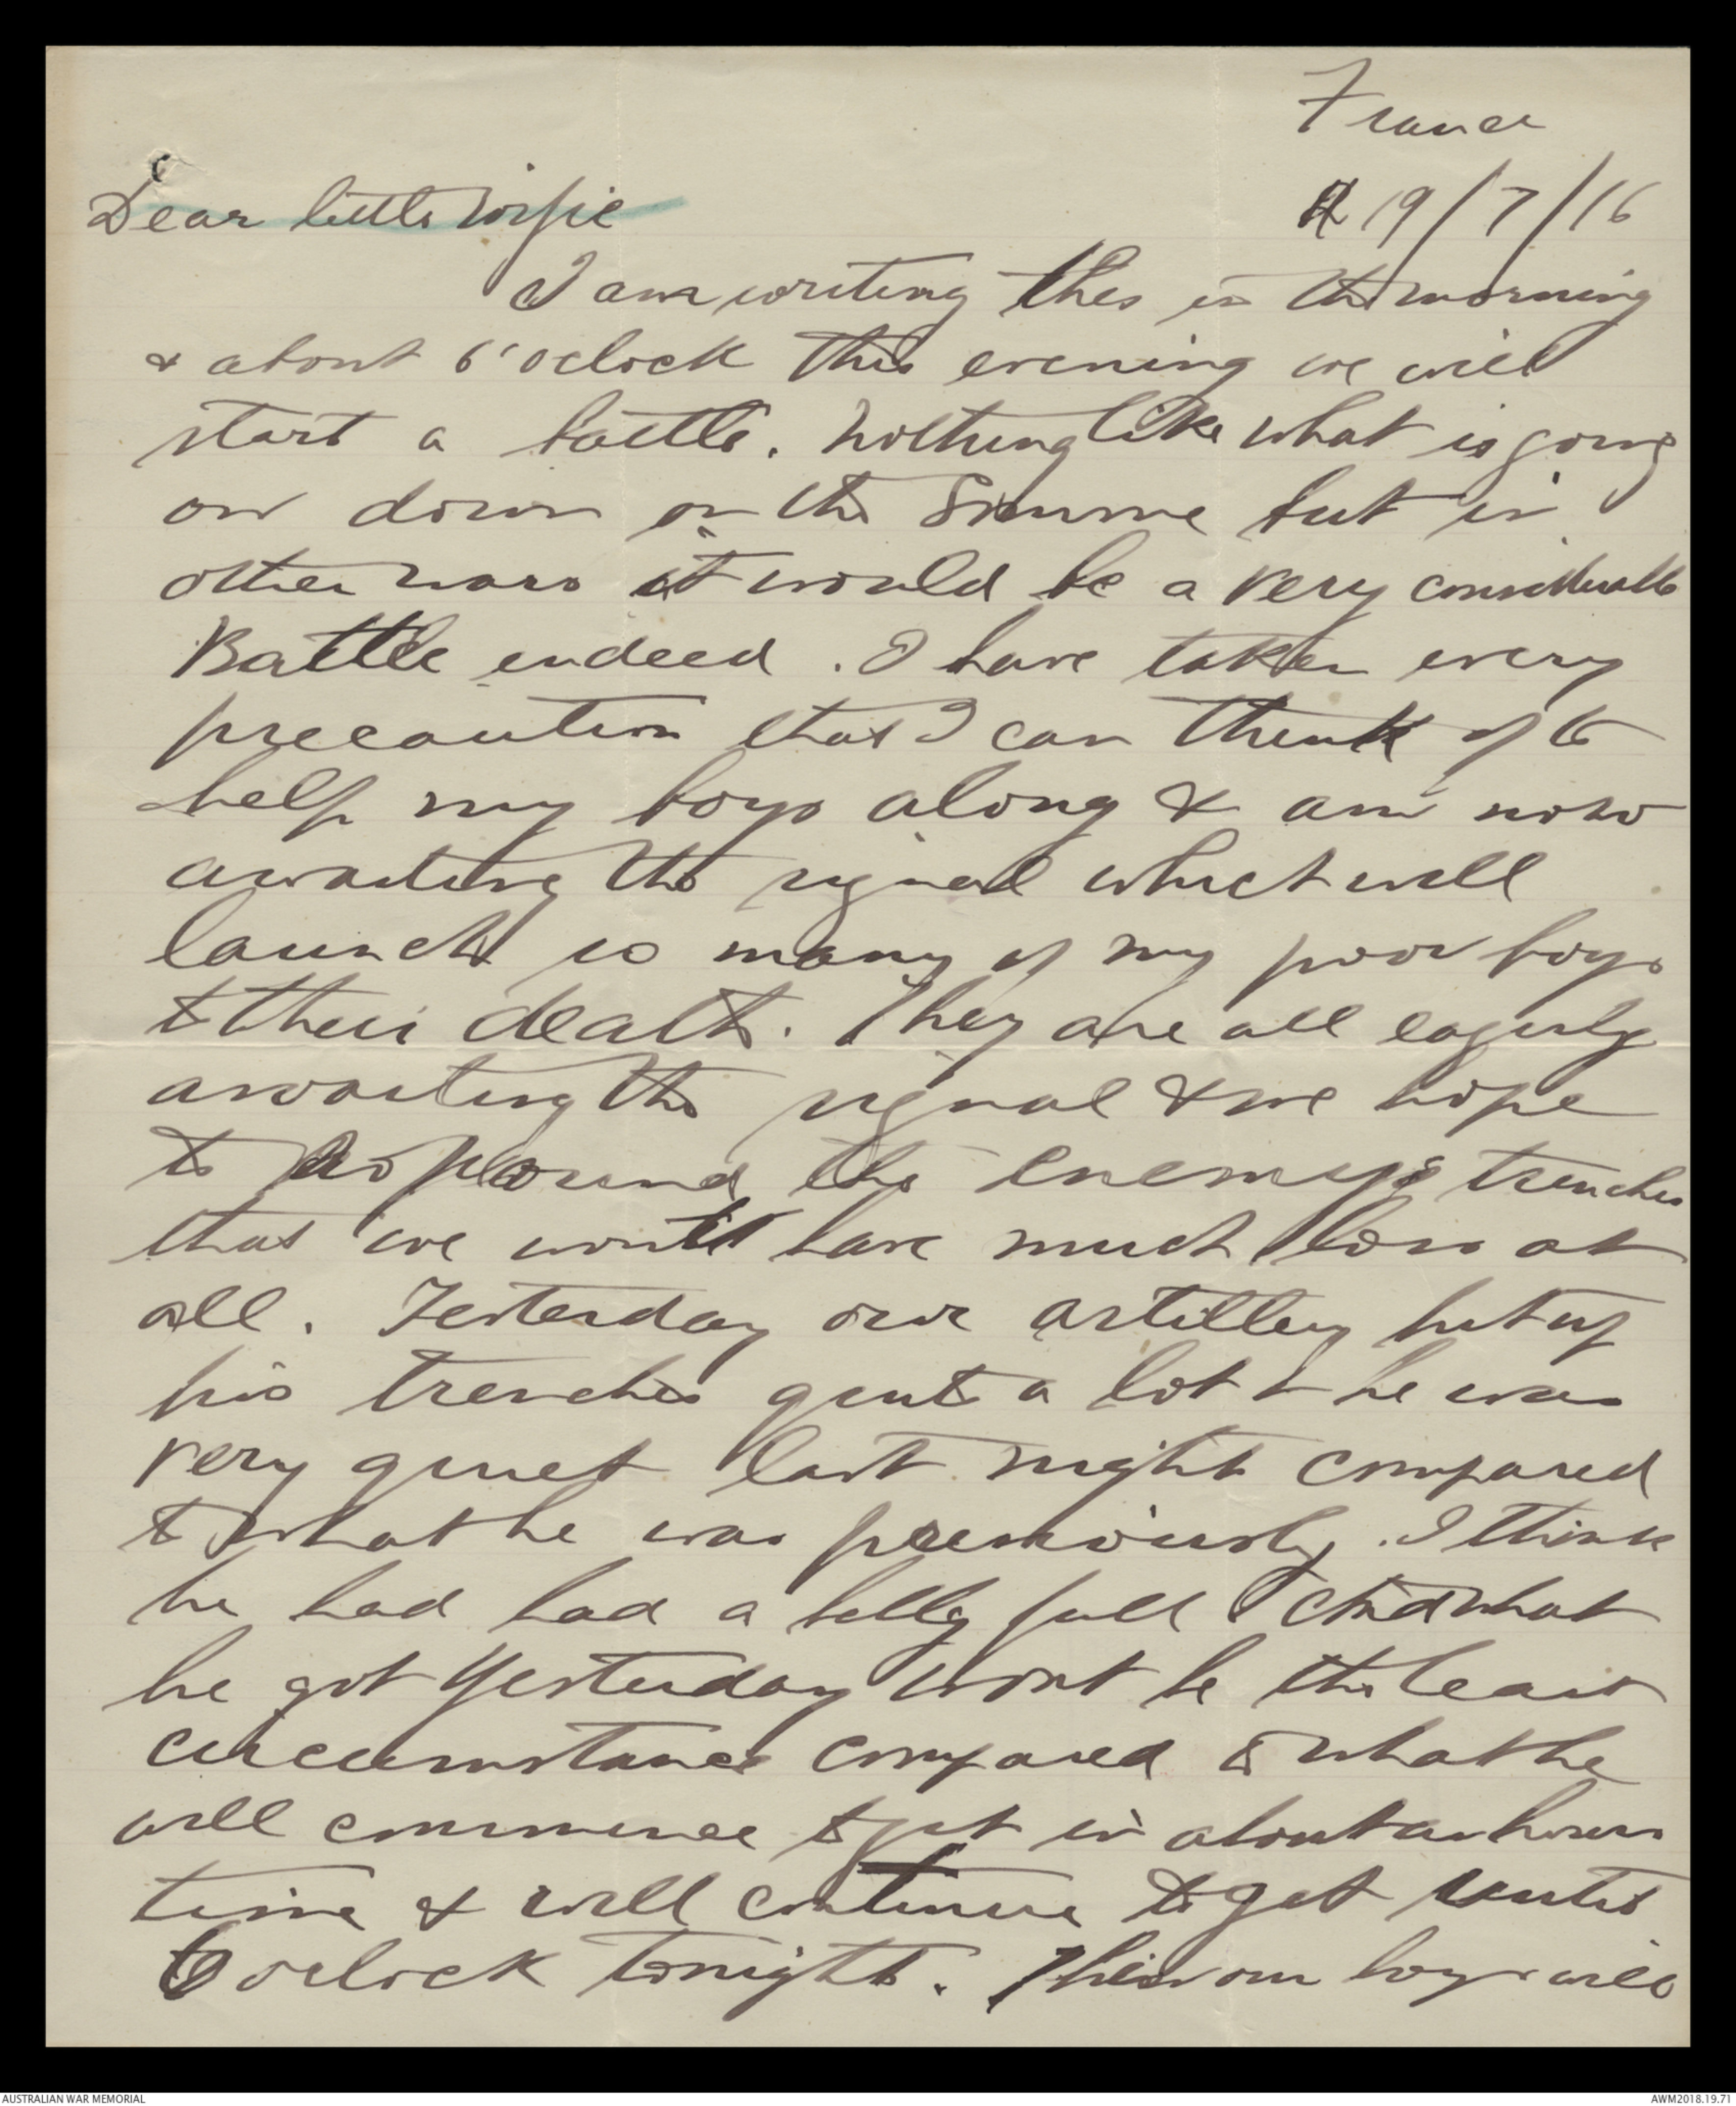 France
19/7/16
Dear little wifie
I am writing this in the morning
& about 6 'oclock this evening we will
start a battle. Nothing like what is going
on down on the Somme but in
other wars it would be a very considerable
Battle indeed. I have taken every
precaution that I can think of to
help my boys along & am now
awaiting the signal which will
launch so many of my poor boys
to their death. They are all eagerly
awaiting the signal & we hope
to so pound the enemy's trenches
that we wont have much loss at
all. Yesterday our artillery hit up
his trenches quite a lot & he was
very quiet last night compared
to what he was previously. I think
he had had a belly full & what
he got yesterday wont be the least
circumstance compared to what he
will commence to get in about an hours
time & will continue to get until
6 oclock tonight. Then our boys will
AUSTRALIAN WAR MEMORIAL
AWM2018.19.71